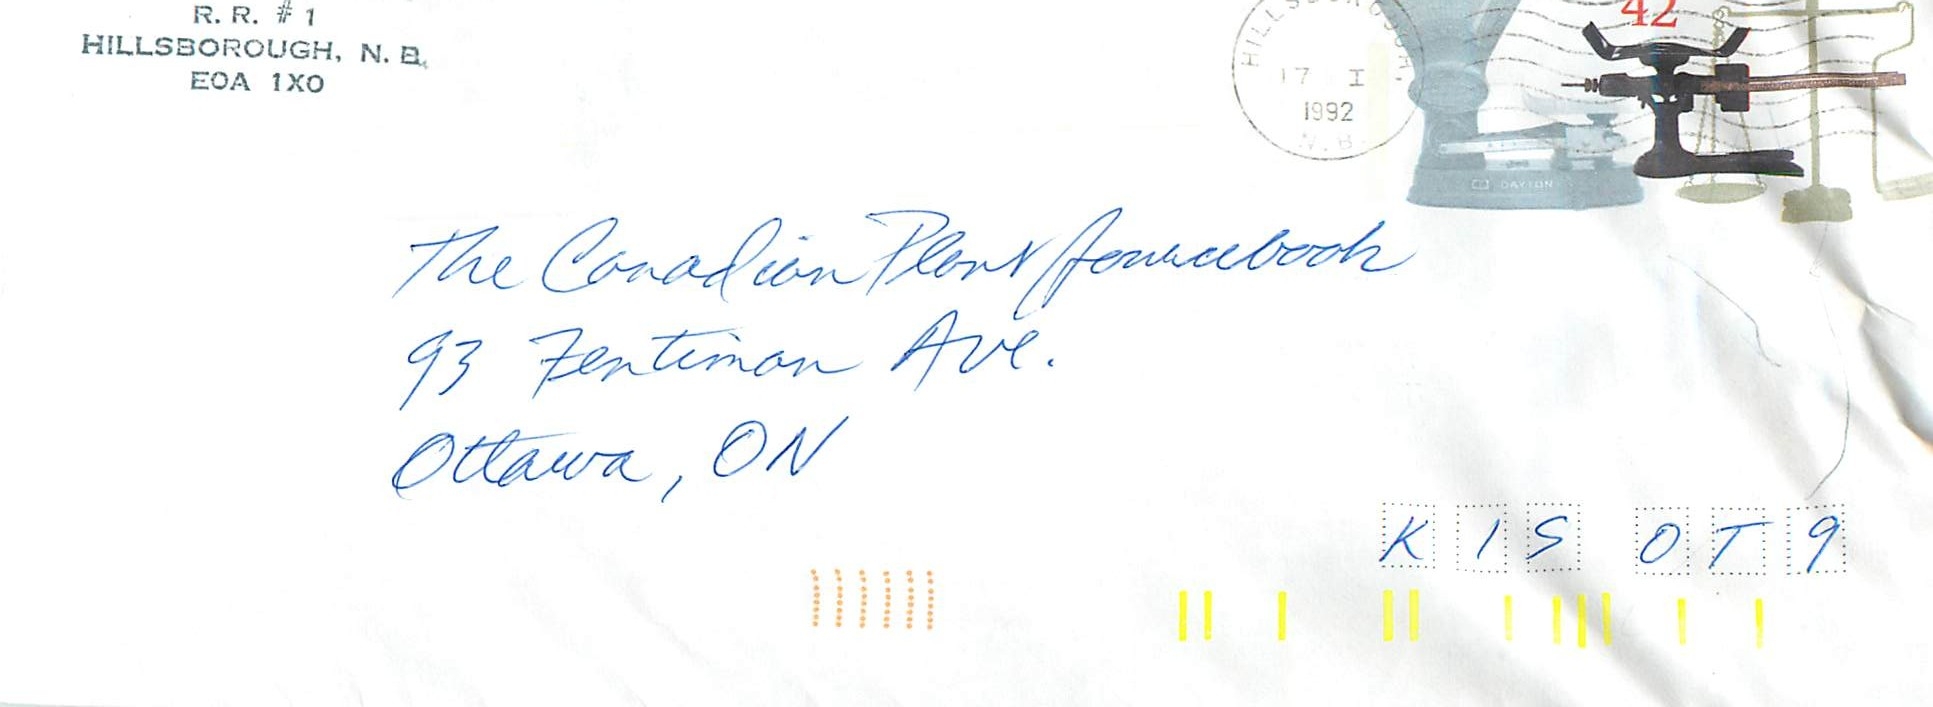 R. R. # 1
HILLSBOROUGH, N. B.
E0A 1X0
HILLSBOROUGH.
17 I
1992
N. B.
42
DAYTON
The Canadian Plant Sourcebook
93 Fentiman Ave.
Ottawa, ON
K 1 S 0 T 9